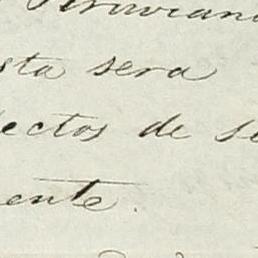 Peruviano
sta sera
ectos de se
ente.